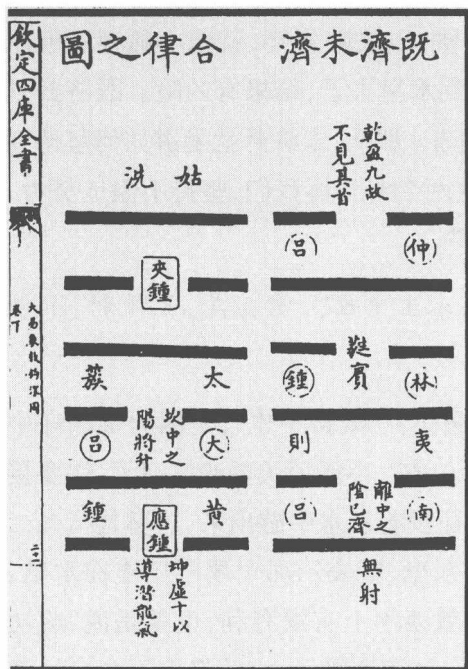 既濟未濟合律之圖
乾盈九故
不見其首
仲吕
蕤賓
林鍾
夷則
離中之
陰已濟
南吕
無射
姑洗
夾鍾
太蔟
坎中之
陽將升
大吕
黄鍾
應鍾
坤虚十以
導潛龍氣
欽定四庫全書
大易象數鉤深圖
卷下